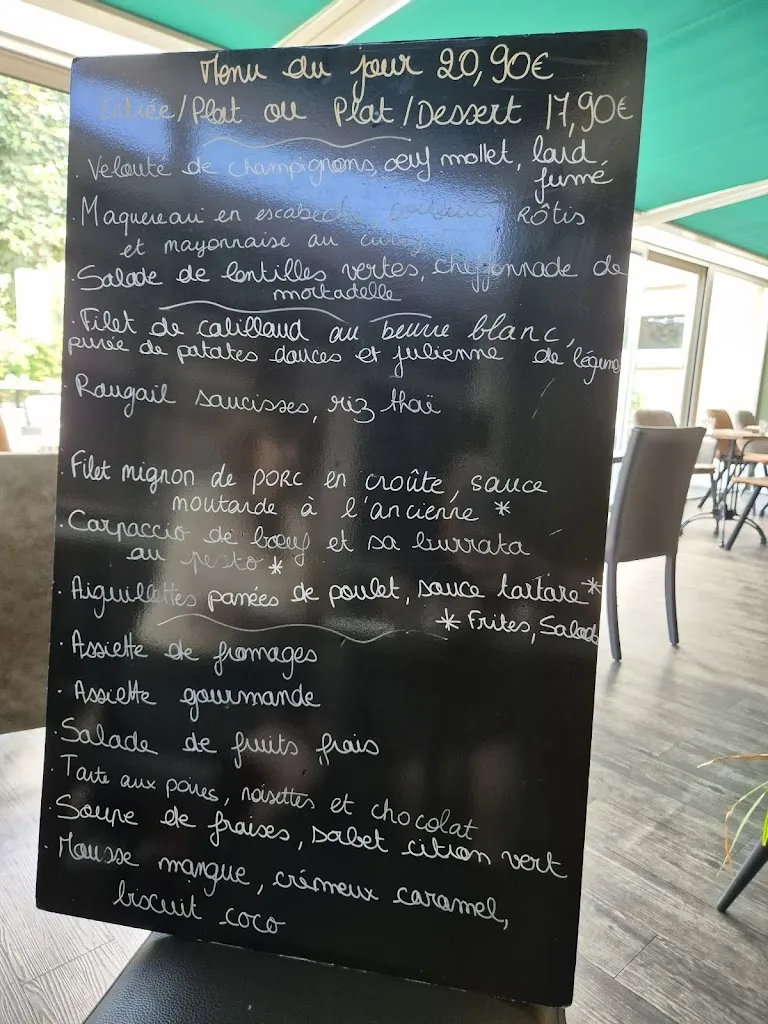 Menu du jour 20,90€
Entrée/Plat ou Plat/Dessert 17,90€
. Velouté de champignons, œuf mollet, lard
fumé
. Maquereau en escabèche, Rôtis
et mayonnaise au curry
. Salade de lentilles vertes, chiffonnade de
mortadelle
. Filet de cabillaud au beurre blanc,
purée de patates douces et julienne de légume
. Rougail saucisses, riz thaï
. Filet mignon de porc en croûte, sauce
moutarde à l'ancienne *
. Carpaccio de bœuf et sa burrata
au pesto *
. Aiguillettes panées de poulet, sauce tartare *
* Frites, Salade
. Assiette de fromages
. Assiette gourmande
. Salade de fruits frais
. Tarte aux poires, noisettes et chocolat
. Soupe de fraises, sorbet citron vert
. Mousse mangue, crémeux caramel,
biscuit coco